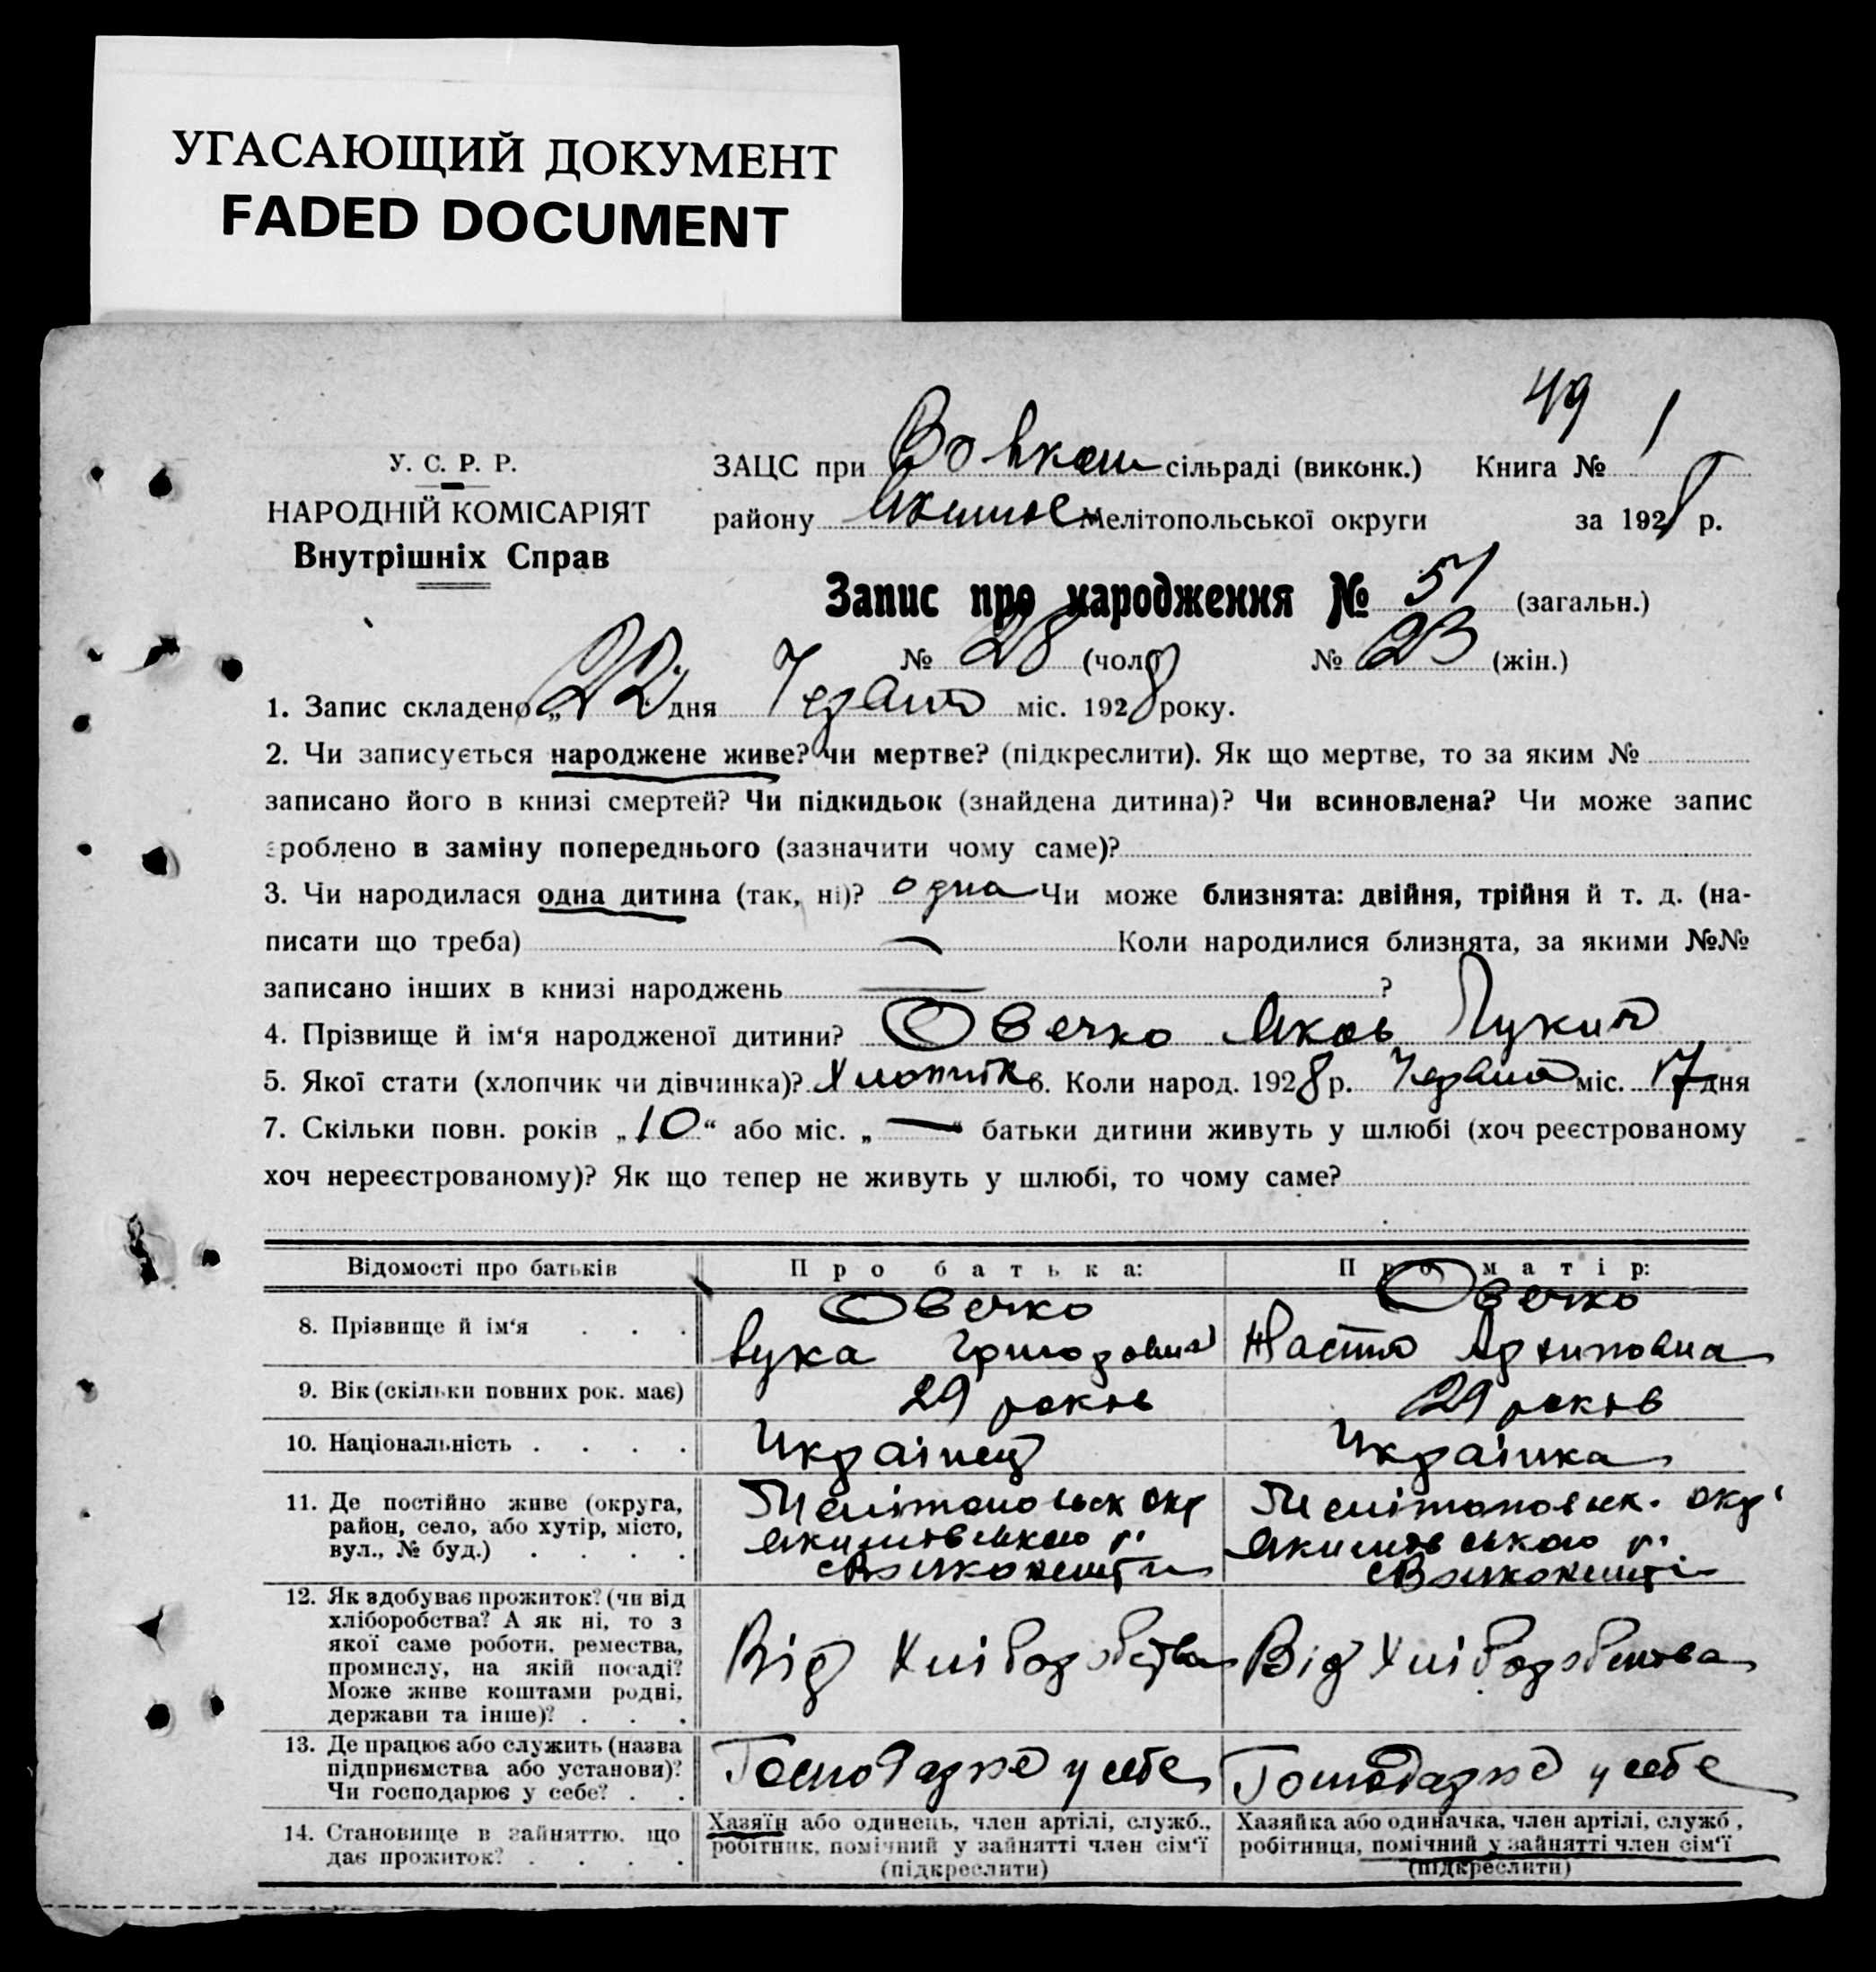 УГАСАЮЩИЙ ДОКУМЕНТ
FADED DOCUMENT
49
У. С. Р. Р.
НАРОДНІЙ КОМІСАРІЯТ
Внутрішніх Справ
ЗАЦС при Вовкош сільраді (виконк.) Книга № 1
району Якимов Мелітопольської округи за 1928 р.
Запис про народження № 51 (загальн.)
№ 28 (чол.) № 23 (жін.)
1. Запис складено „22 дня Червня міс. 1928 року.
2. Чи записується народжене живе? чи мертве? (підкреслити). Як що мертве, то за яким №
записано його в книзі смертей? Чи підкидьок (знайдена дитина)? Чи всиновлена? Чи може запис
зроблено в заміну попереднього (зазначити чому саме)?
3. Чи народилася одна дитина (так, ні)? одна Чи може близнята: двійня, трійня й т. д. (на-
писати що треба) — Коли народилися близнята, за якими №№
записано інших в книзі народжень — ?
4. Прізвище й ім‘я народженої дитини? Овечко Яков Лукич
5. Якої стати (хлопчик чи дівчинка)? Хлопчик 6. Коли народ. 1928 р. Червня міс. 17 дня
7. Скільки повн. років „10“ або міс. „—“ батьки дитини живуть у шлюбі (хоч реєстрованому
хоч нереєстрованому)? Як що тепер не живуть у шлюбі, то чому саме?
Відомості про батьків Про батька: Про матір:
8. Прізвище й ім‘я . . . Овечко Овечко
Лука Григорович Настя Архиповна
9. Вік (скільки повних рок. має) 29 років 29 років
10. Національність . . . . Українец Українка
11. Де постійно живе (округа,
район, село, або хутір, місто,
вул., № буд.) . . . .
Мелітопольск окр
Якимівського р.
Мелітопольск. окр
Якимівського р.
12. Як здобуває прожиток? (чи від
хліборобства? А як ні, то з
якої саме роботи, ремества,
промислу, на якій посаді?
Може живе коштами родні,
держави та інше)? . . .
Від Хліборобства Від Хліборобства
13. Де працює або служить (назва
підприємства або установи)?
Чи господарює у себе? . .
Господарює у себе Господарює у себе
14. Становище в зайняттю, що
дає прожиток? . . . .
Хазяїн або одинець, член артілі, служб.,
робітник, помічний у зайнятті член сім‘ї
(підкреслити)
Хазяйка або одиначка, член артілі, служб.,
робітниця, помічний у зайнятті член сім‘ї
(підкреслити)